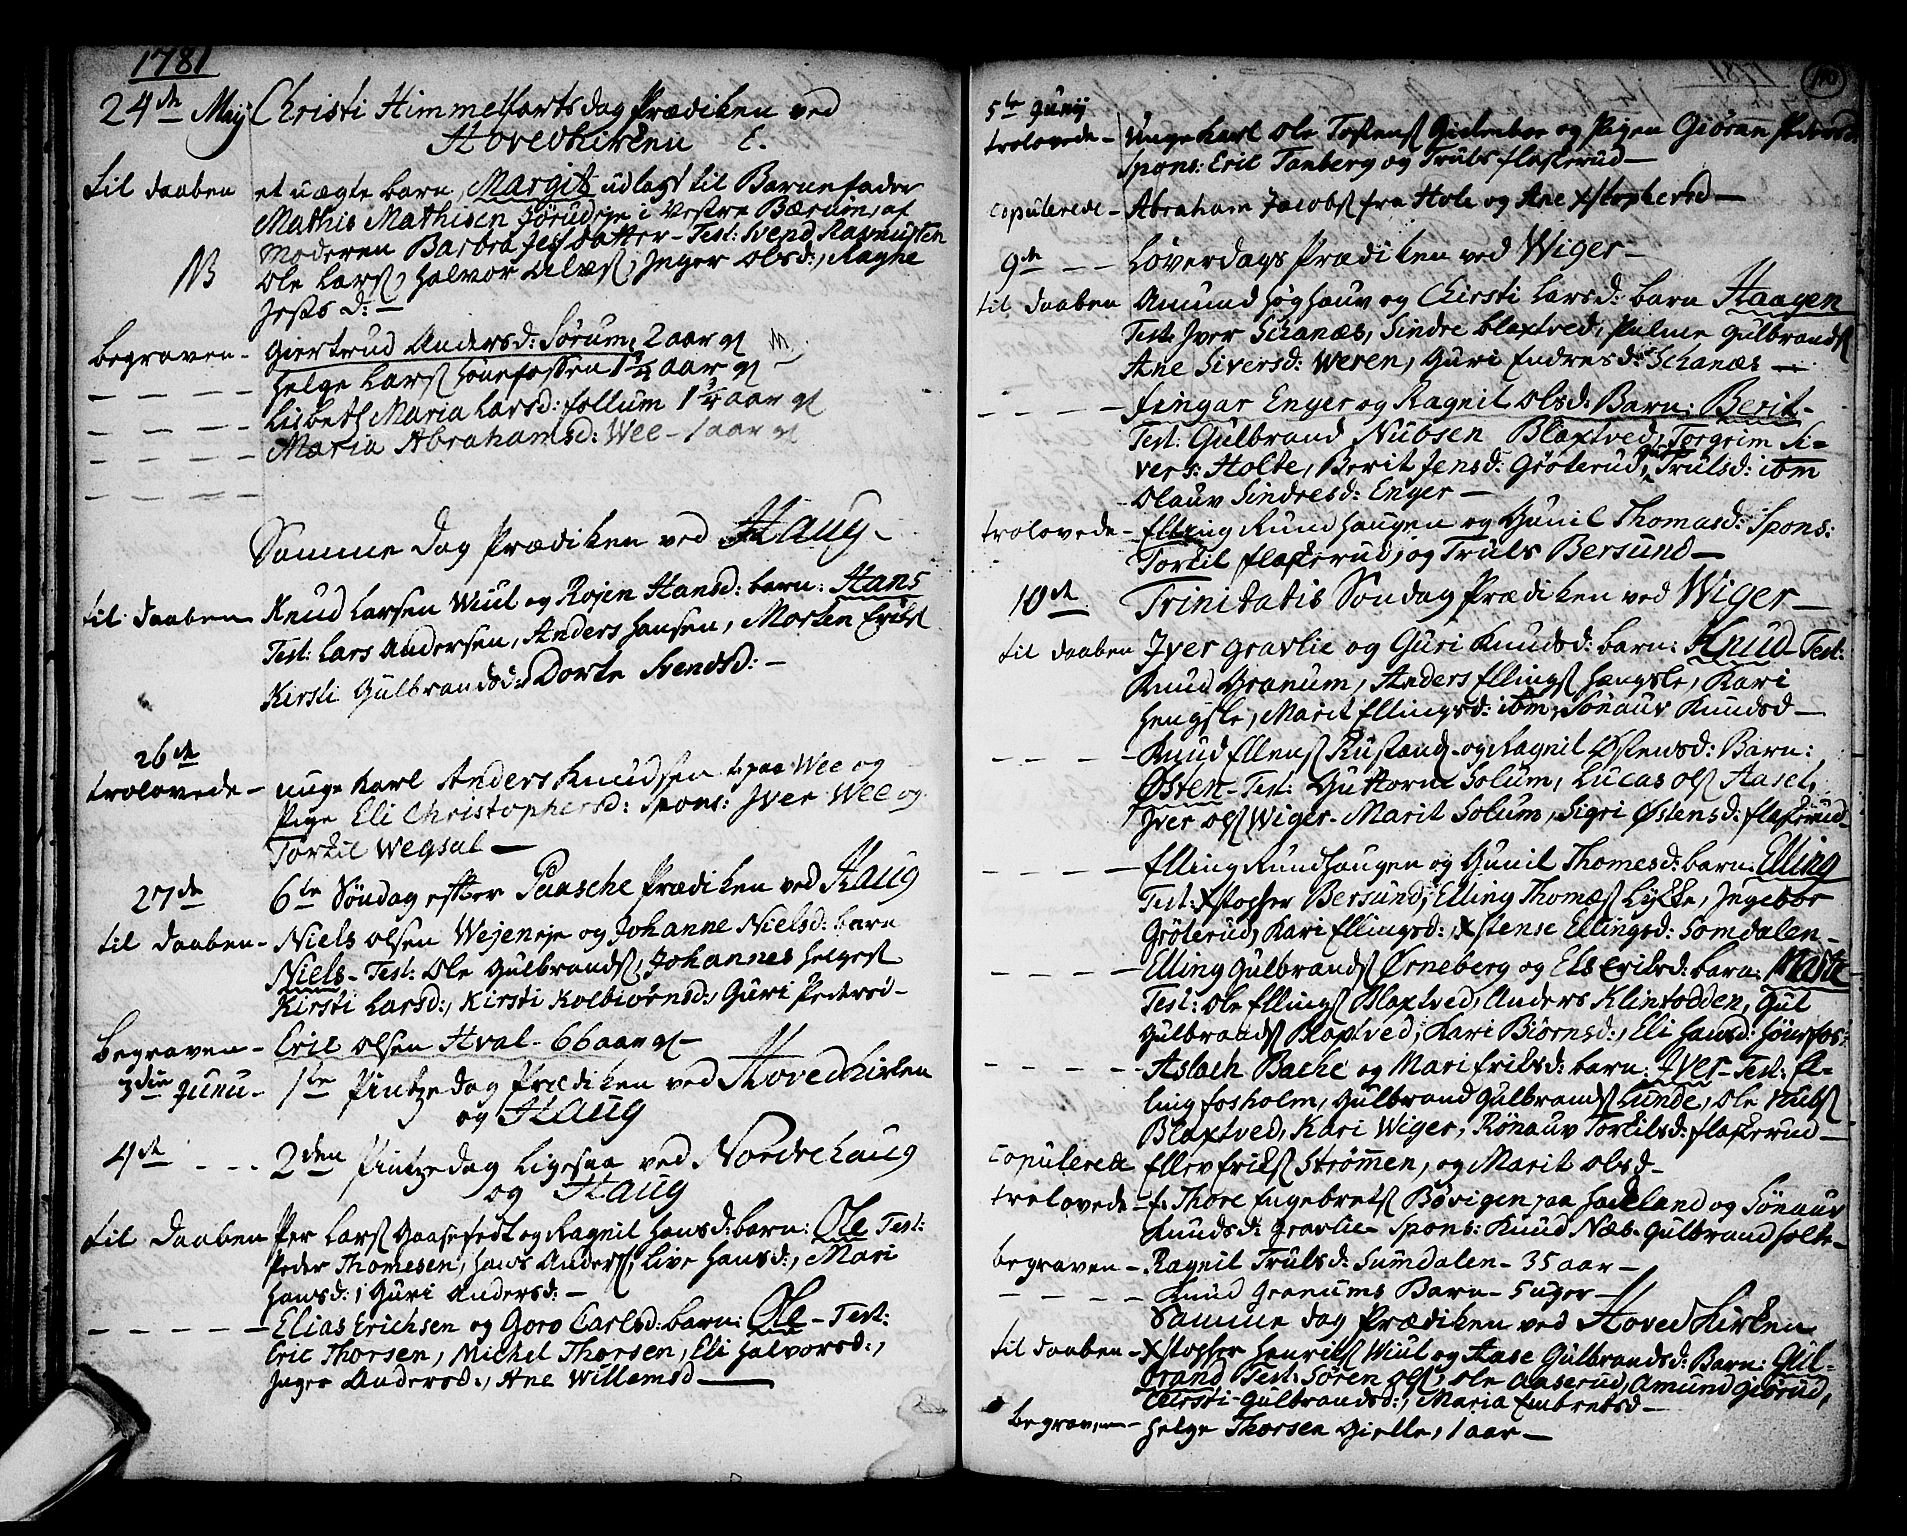 1781
24de Maij Christi Himmelfartsdag Prædiken ved
Hovedkirken E.
til daaben et uægte barn Margit udlagt til Barnefader
Mathis Mathisen i Vestre Bærum, af
Moderen Barbra Datter - Test: Svend Rasmusen
NB Ole Lars, Halvor, Inger Olsd:, Ragne
d: -
Begraven - Giertrud Andersd: Sørum, 2 aar gl
Helge Lars Hönefossen 1 1/4 aar gl
Lisbeth Maria Larsd: Follum 1 1/4 aar gl
Maria Abrahamsd: Wee - 1 aar gl
Samme dag Prædiken ved Haug -
til daaben Knud Larsen Wiul og Rosen Hansd: barn: Hans
Test: Lars Andersen, Anders Hansen, Morten
Kirsti Gulbrandsd: Dorte Svendsd: -
26de
trolovede - unge Karl Anders Knudssen paa Wee og
Pige Eli Christophersd: Spons: Iver Wee og
Torkil Wegsal -
27de 6te Söndag efter Paasche Prædiken ved Haug
til daaben - Niels Olsen Wejeneje og Johanne Nielsd: barn
Niels - Test: Ole Gulbrands, Johannes
Kirsti Larsd:, Kirsti Kolbiörnsd:, Guri Pedersd -
Begraven - Eric Olsen Hval - 66 aar gl -
3die Junii - 1te Pintzedag Prædiken ved Hovedkirken
og Haug
4de - - - 2den Pintzedag ligesaa ved Nordrehaug
og Haug
til Daaben Per Lars og Ragnil Hansd: barn: Ole Test:
Peder Thomesen, Hans Anders, Live Hansd:, Mari
Hansd:, Guri Andersd: -
Elias Erichsen og Goro Carlsd: barn: Ole - Test:
Eric Thorsen, Michel Thorsen, Eli Halvorsd:,
Inger Andersd:, Ane Willemsd -
1781
5te Junij
trolovede - Unge Karl Ole og Pigen Giöran
Spons: Eric Tanberg og Truls Flaskerud -
Copulerede - Abraham Jacobs fra Hole og Ane Xstophersd -
9de - - Löverdags Prædiken ved Wiger -
til daaben Amund Höghauv og Chirsti Larsd: barn Haagen
Test: Iver Schanæs, Sindre Blaxtved, Palme Gulbrands
Ane Siversd: Weren, Guri Endresd: Schanæs -
Fingar Enger og Ragnil Olsd: Barn: Berit -
Test: Gulbrand Nubsen Blaxtved, Torgrim Si=
vers: Holte, Berit Jensd: Gröterud, Trulsd: ibm
Olauv Sindresd: Enger -
trolovede - Elling Rundhaugen og Gunil Thomasd: Spons:
Torkil Flaskerud, og Truls Bersund -
10de Trinitatis Söndag Prædiken ved Wiger -
til daaben Iver Gravlie og Guri Knudsd: barn: Knud - Test:
Knud Granum, Anders Ellings Hængsle, Kari
Hengsle, Marit Ellingsd: ibm, Sönauv Knudsd -
Knud Ellens Rustand og Ragnil Østensd: Barn:
Østen - Test: Guttorm Solum, Lucas Ols Aaset,
Iver Ols Wiger - Marit Solum, Sigri Østensd: Flaskerud -
Elling Rundhaugen og Gunil Thomesd: barn: Elling
Test: Xstopher Bersund, Elling Thomæs Lykke, Ingebor
Gröterud, Kari Ellingsd:, Xstense Ellingsd: Somdalen -
Elling Gulbrands Ørneberg og Els Eriksd: barn:
Test: Ole Ellings Blaxtved, Anders Klintodden, Gul
Gulbrands Blaxtved, Kari Biörnsd:, Eli Hansd: Hönefos:
Aslach Bache og Mari Eriksd: barn: Iver - Test: El-
ling Fosholm, Gulbrand Gulbrands Lunde, Ole Nubs
Blaxtved, Kari Wiger, Rönauv Torkilsd: Flaskerud -
Copulerede Ellev Eriks Strömmen, og Marit Olsd -
trolovede - E. Thore Engebrets Bövigen paa Hadeland og Sönauv
Knudsd: Gravlie - Spons: Knud Næs - Gulbrand Holte -
begraven - Ragnil Trulsd: Sumdalen - 35 aar -
Knud Granums Barn - 5 uger -
Samme dag Prædiken ved Hovedkirken
til daaben - Xstopher Henriks Wiul og Aase Gulbrandsd: Barn: Gul-
brand Test: Sören Ols, Ole Aaserud, Amund Giörud,
Chirsti Gulbrandsd:, Maria Embretsd -
begraven - Helge Thorsen Gielle, 1 aar -